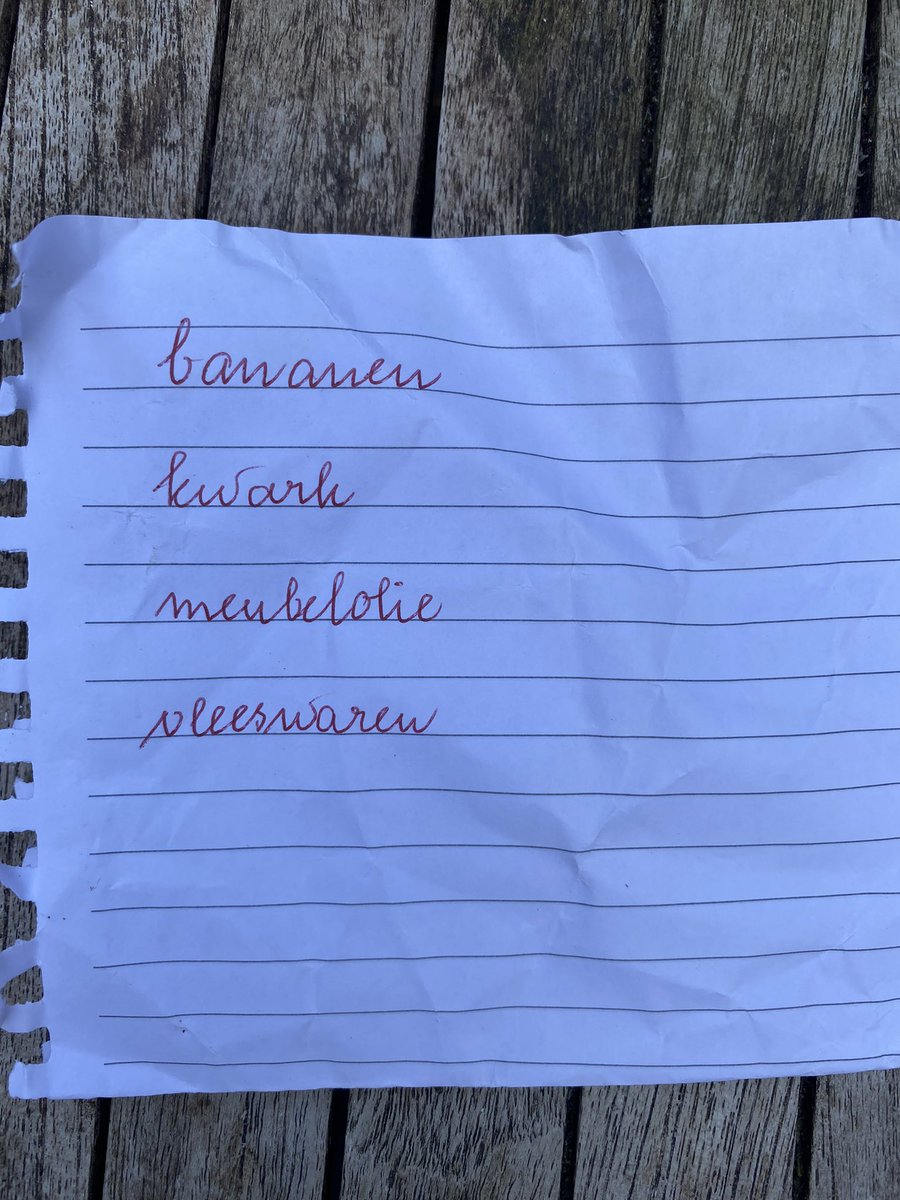 bananen
kwark
meubelolie
vleeswaren